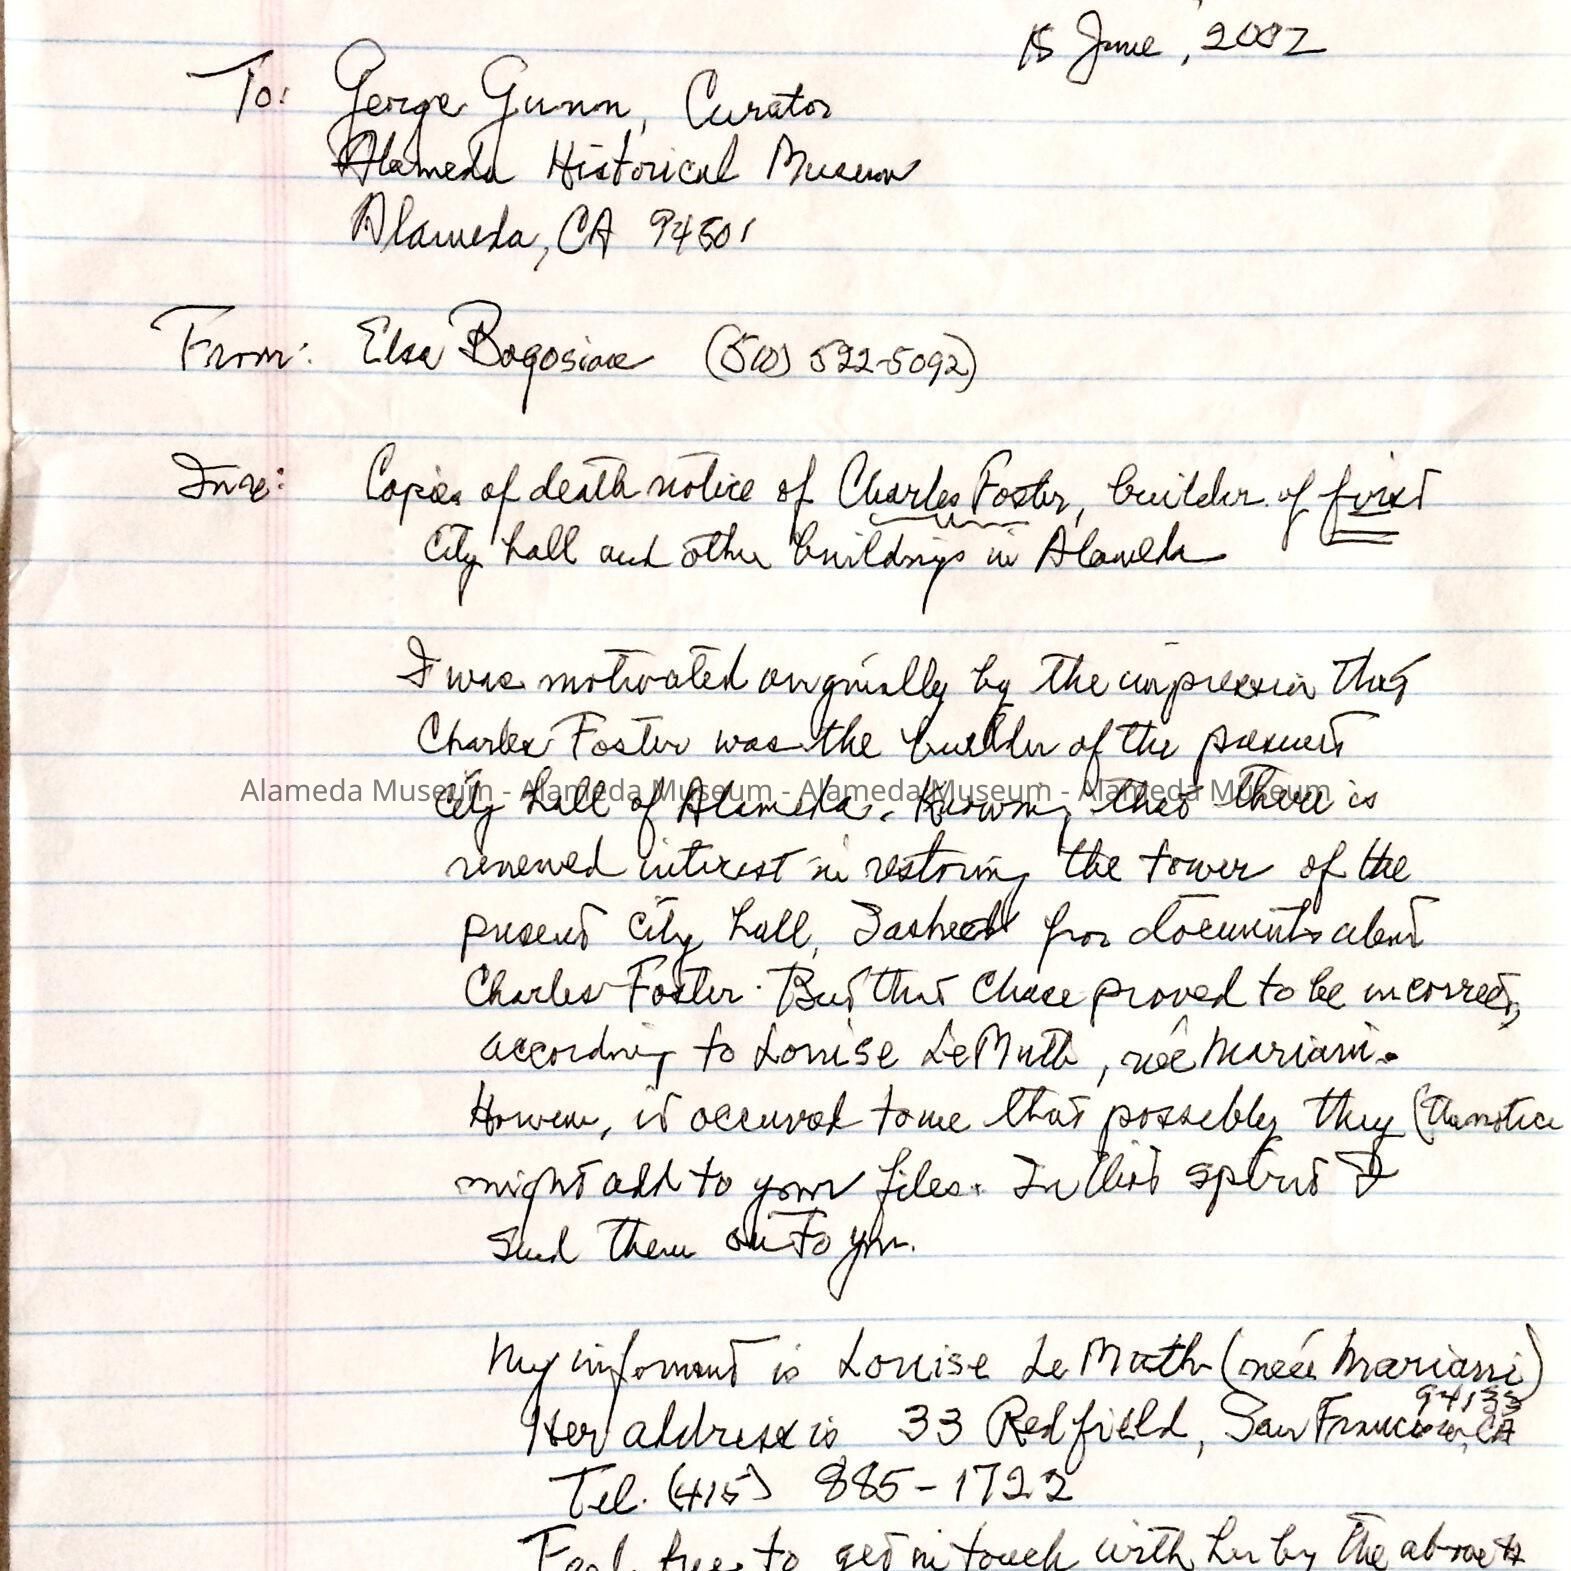 15 June, 2002
To: George Gunn, Curator
Alameda Historical Museum
Alameda, CA 94501
From: Elsa Bogosian (510) 522-5092)
In re: Copies of death notice of Charles Foster, builder of first
City hall and other buildings in Alameda
I was motivated originally by the impression that
Charles Foster was the builder of the present
City hall of Alameda. Knowing that there is
Alameda Museum - Alameda Museum - Alameda Museum - Alameda Museum
renewed interest in restoring the tower of the
present City hall, I asked for documents about
Charles Foster. But that chase proved to be incorrect,
according to Louise LeMuth, neé Mariani.
However, it occured to me that possibly they (the notice
might add to your files. In this spirit I
send them on to you.
My informant is Louise Le Muth (neé Mariani)
Her address is 33 Redfield, San Francisco, CA
94133
Tel. (415) 885-1722
Feel free to get in touch with her by the above